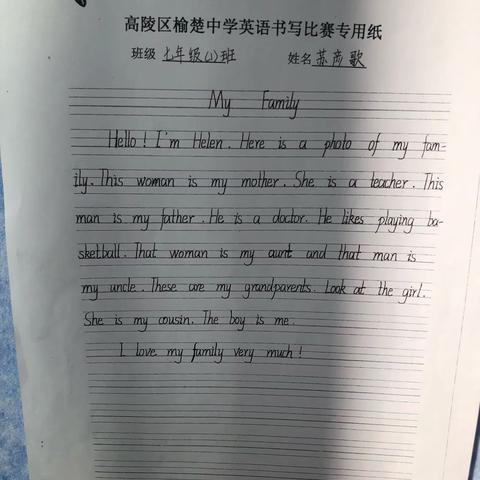 高陵区榆楚中学英语书写比赛专用纸
班级 七年级(1)班 姓名 苏商歌
My Family
Hello! I'm Helen. Here is a photo of my fam-
ily. This woman is my mother. She is a teacher. This
man is my father. He is a doctor. He likes playing ba-
sketball. That woman is my aunt and that man is
my uncle. These are my grandparents. Look at the girl.
She is my cousin. The boy is me.
I love my family very much!